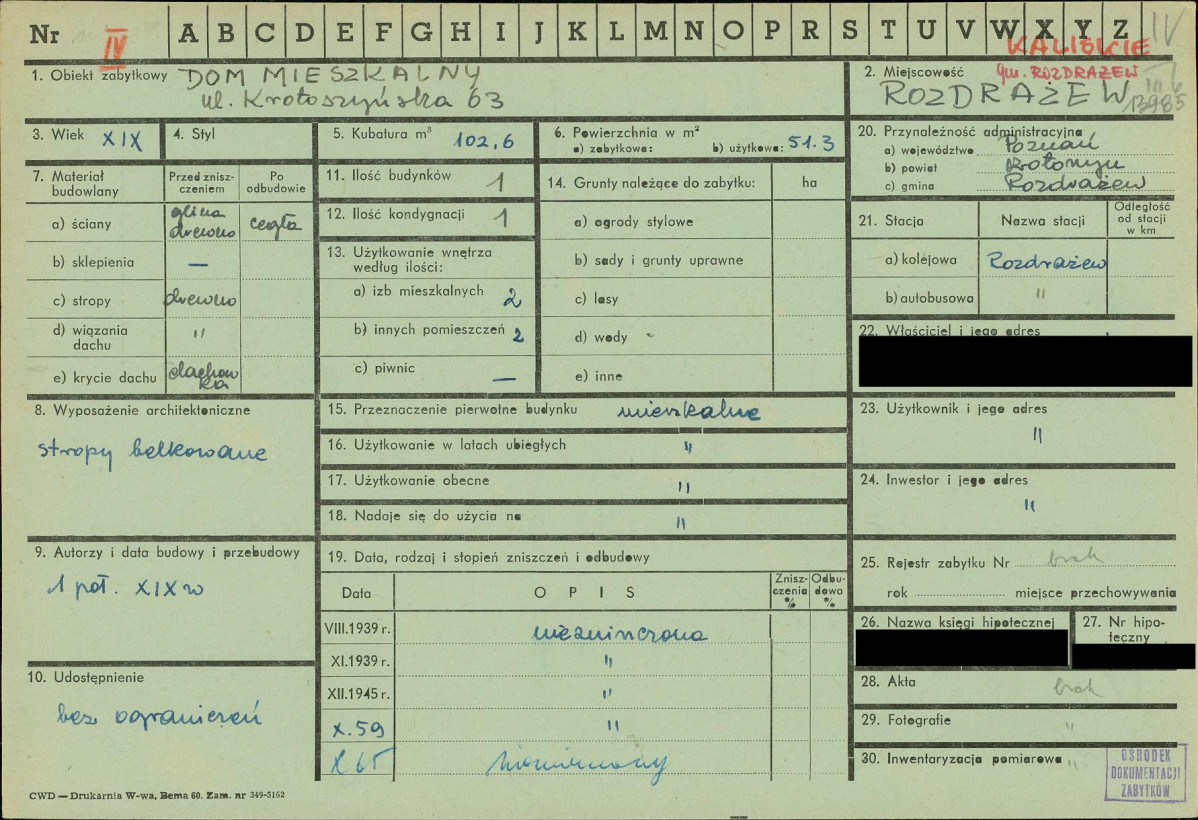 Nr IV A B C D E F G H I J K L M N O P R S T U V W X Y Z IV
KALISKIE
1. Obiekt zabytkowy DOM MIESZKALNY
ul. Krotoszyńska 63
2. Miejscowość gm. ROZDRAŻEW
ROZDRAŻEW 13985
3. Wiek XIX
4. Styl
5. Kubatura m³ 102,6
6. Powierzchnia w m²
a) zabytkowa: b) użytkowa: 51.3
7. Materiał budowlany
Przed znisz-
czeniem
Po
odbudowie
a) ściany glina drewno cegła
b) sklepienia —
c) stropy drewno
d) wiązania dachu "
e) krycie dachu dachowka
8. Wyposażenie architektoniczne
stropy belkowane
9. Autorzy i data budowy i przebudowy
1 poł. XIX w
10. Udostępnienie
bez ograniczeń
11. Ilość budynków 1
12. Ilość kondygnacji 1
13. Użytkowanie wnętrza
według ilości:
a) izb mieszkalnych 2
b) innych pomieszczeń 2
c) piwnic —
14. Grunty należące do zabytku: ha
a) ogrody stylowe
b) sady i grunty uprawne
c) lasy
d) wody
e) inne
15. Przeznaczenie pierwotne budynku mieszkalne
16. Użytkowanie w latach ubiegłych "
17. Użytkowanie obecne "
18. Nadaje się do użycia na "
19. Data, rodzaj i stopień zniszczeń i odbudowy
Data OPIS Znisz-
czenia
%
Odbu-
dowa
%
VIII.1939 r. niezniszczona
XI.1939 r. "
XII.1945 r. "
X.59 "
X 65
20. Przynależność administracyjna
a) województwo Poznań
b) powiat Krotoszyn
c) gmina Rozdrażew
21. Stacja Nazwa stacji Odległość
od stacji
w km
a) kolejowa Rozdrażew
b) autobusowa "
22. Właściciel i jego adres
23. Użytkownik i jego adres
"
24. Inwestor i jego adres
"
25. Rejestr zabytku Nr brak
rok miejsce przechowywania
26. Nazwa księgi hipotecznej
27. Nr hipo-
teczny
28. Akta brak
29. Fotografie "
30. Inwentaryzacja pomiarowa "
OŚRODEK
DOKUMENTACJI
ZABYTKÓW
CWD — Drukarnia W-wa, Bema 60. Zam. nr 349-5162